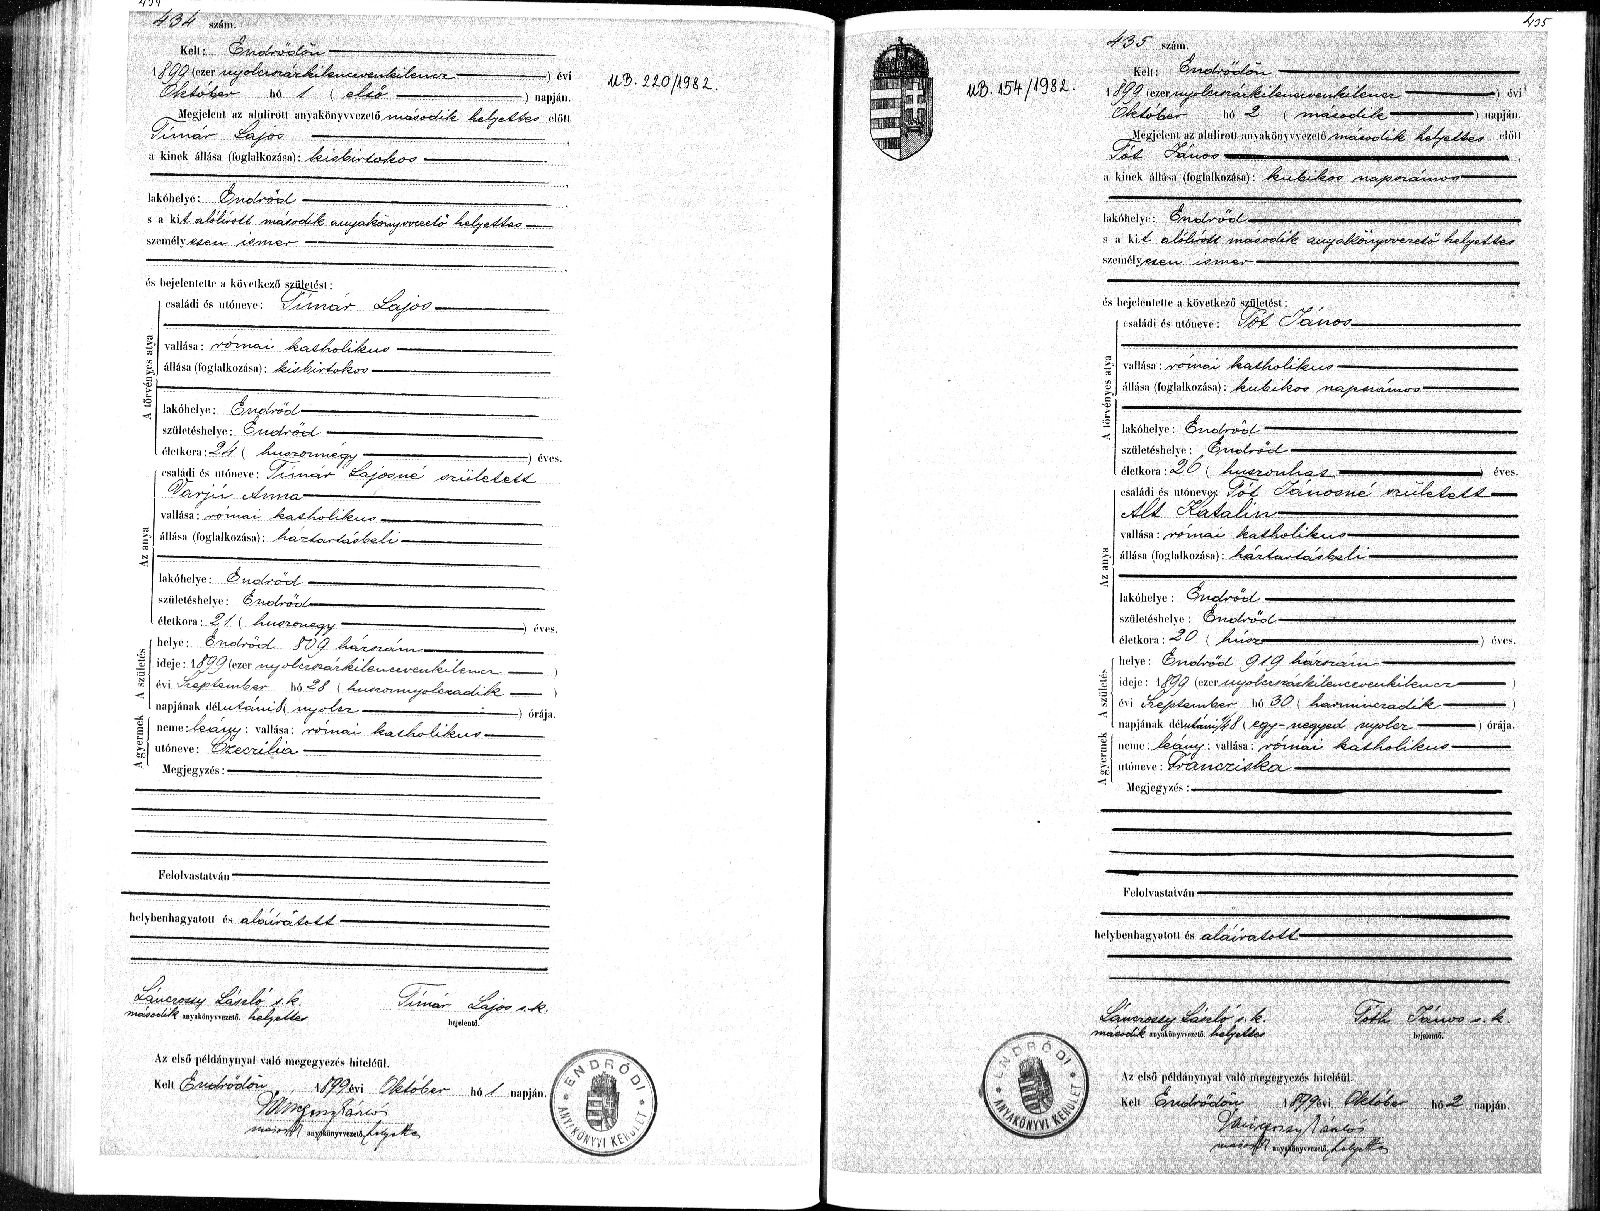 434
434 szám.
Kelt: Endrődön
1899 (ezer nyolczszázkilenczvenkilencz) évi
Október hó 1 (első) napján.
Megjelent az alulirott anyakönyvvezető második helyettes előtt
Tímár Lajos
a kinek állása (foglalkozása): kisbirtokos
lakóhelye: Endrőd
s a kit alólirott második anyakönyvvezető helyettes
személyesen ismer
és bejelentette a következő születést:
A törvényes atya
családi és utóneve: Tímár Lajos
vallása: római katholikus
állása (foglalkozása): kisbirtokos
lakóhelye: Endrőd
születéshelye: Endrőd
életkora: 24 (huszonnégy) éves.
Az anya
családi és utóneve: Tímár Lajosné született
Varjú Anna
vallása: római katholikus
állása (foglalkozása): háztartásbeli
lakóhelye: Endrőd
születéshelye: Endrőd
életkora: 21 (huszonegy) éves.
A születés
helye: Endrőd 809 házszám
ideje: 1899 (ezer nyolczszázkilenczvenkilencz)
évi Szeptember hó 28 (huszonnyolczadik)
napjának délutáni 8 (nyolcz) órája.
A gyermek
neme: leány; vallása: római katholikus
utóneve: Czeczilia
Megjegyzés:
Felolvastatván
helybenhagyatott és aláiratott
Lánczossy László s.k. Tímár Lajos s.k.
második anyakönyvvezető. helyettes bejelentő.
Az első példánynyal való megegyezés hiteléül.
Kelt Endrődön, 1899 évi Október hó 1 napján.
anyakönyvvezető. helyettes
ENDRŐDI ANYAKÖNYVI KERÜLET
MB. 220/1982.
435
435 szám.
MB. 154/1982.
Kelt: Endrődön
1899 (ezer nyolczszázkilenczvenkilencz) évi
Október hó 2 (második) napján.
Megjelent az alulirott anyakönyvvezető második helyettes előtt
Tót János
a kinek állása (foglalkozása): kubikos napszámos
lakóhelye: Endrőd
s a kit alólirott második anyakönyvvezető helyettes
személyesen ismer
és bejelentette a következő születést:
A törvényes atya
családi és utóneve: Tót János
vallása: római katholikus
állása (foglalkozása): kubikos napszámos
lakóhelye: Endrőd
születéshelye: Endrőd
életkora: 26 (huszonhat) éves.
Az anya
családi és utóneve: Tót Jánosné született
Alt Katalin
vallása: római katholikus
állása (foglalkozása): háztartásbeli
lakóhelye: Endrőd
születéshelye: Endrőd
életkora: 20 (húsz) éves.
A születés
helye: Endrőd 919 házszám
ideje: 1899 (ezer nyolczszázkilenczvenkilencz)
évi Szeptember hó 30 (harminczadik)
napjának délutáni ¼8 (egy-negyed nyolcz) órája.
A gyermek
neme: leány; vallása: római katholikus
utóneve: Francziska
Megjegyzés:
Felolvastatván
helybenhagyatott és aláiratott
Lánczossy László s.k. Tóth János s.k.
második anyakönyvvezető. helyettes bejelentő.
Az első példánynyal való megegyezés hiteléül.
Kelt Endrődön 1899 évi Október hó 2 napján.
anyakönyvvezető. helyettes
ENDRŐDI ANYAKÖNYVI KERÜLET